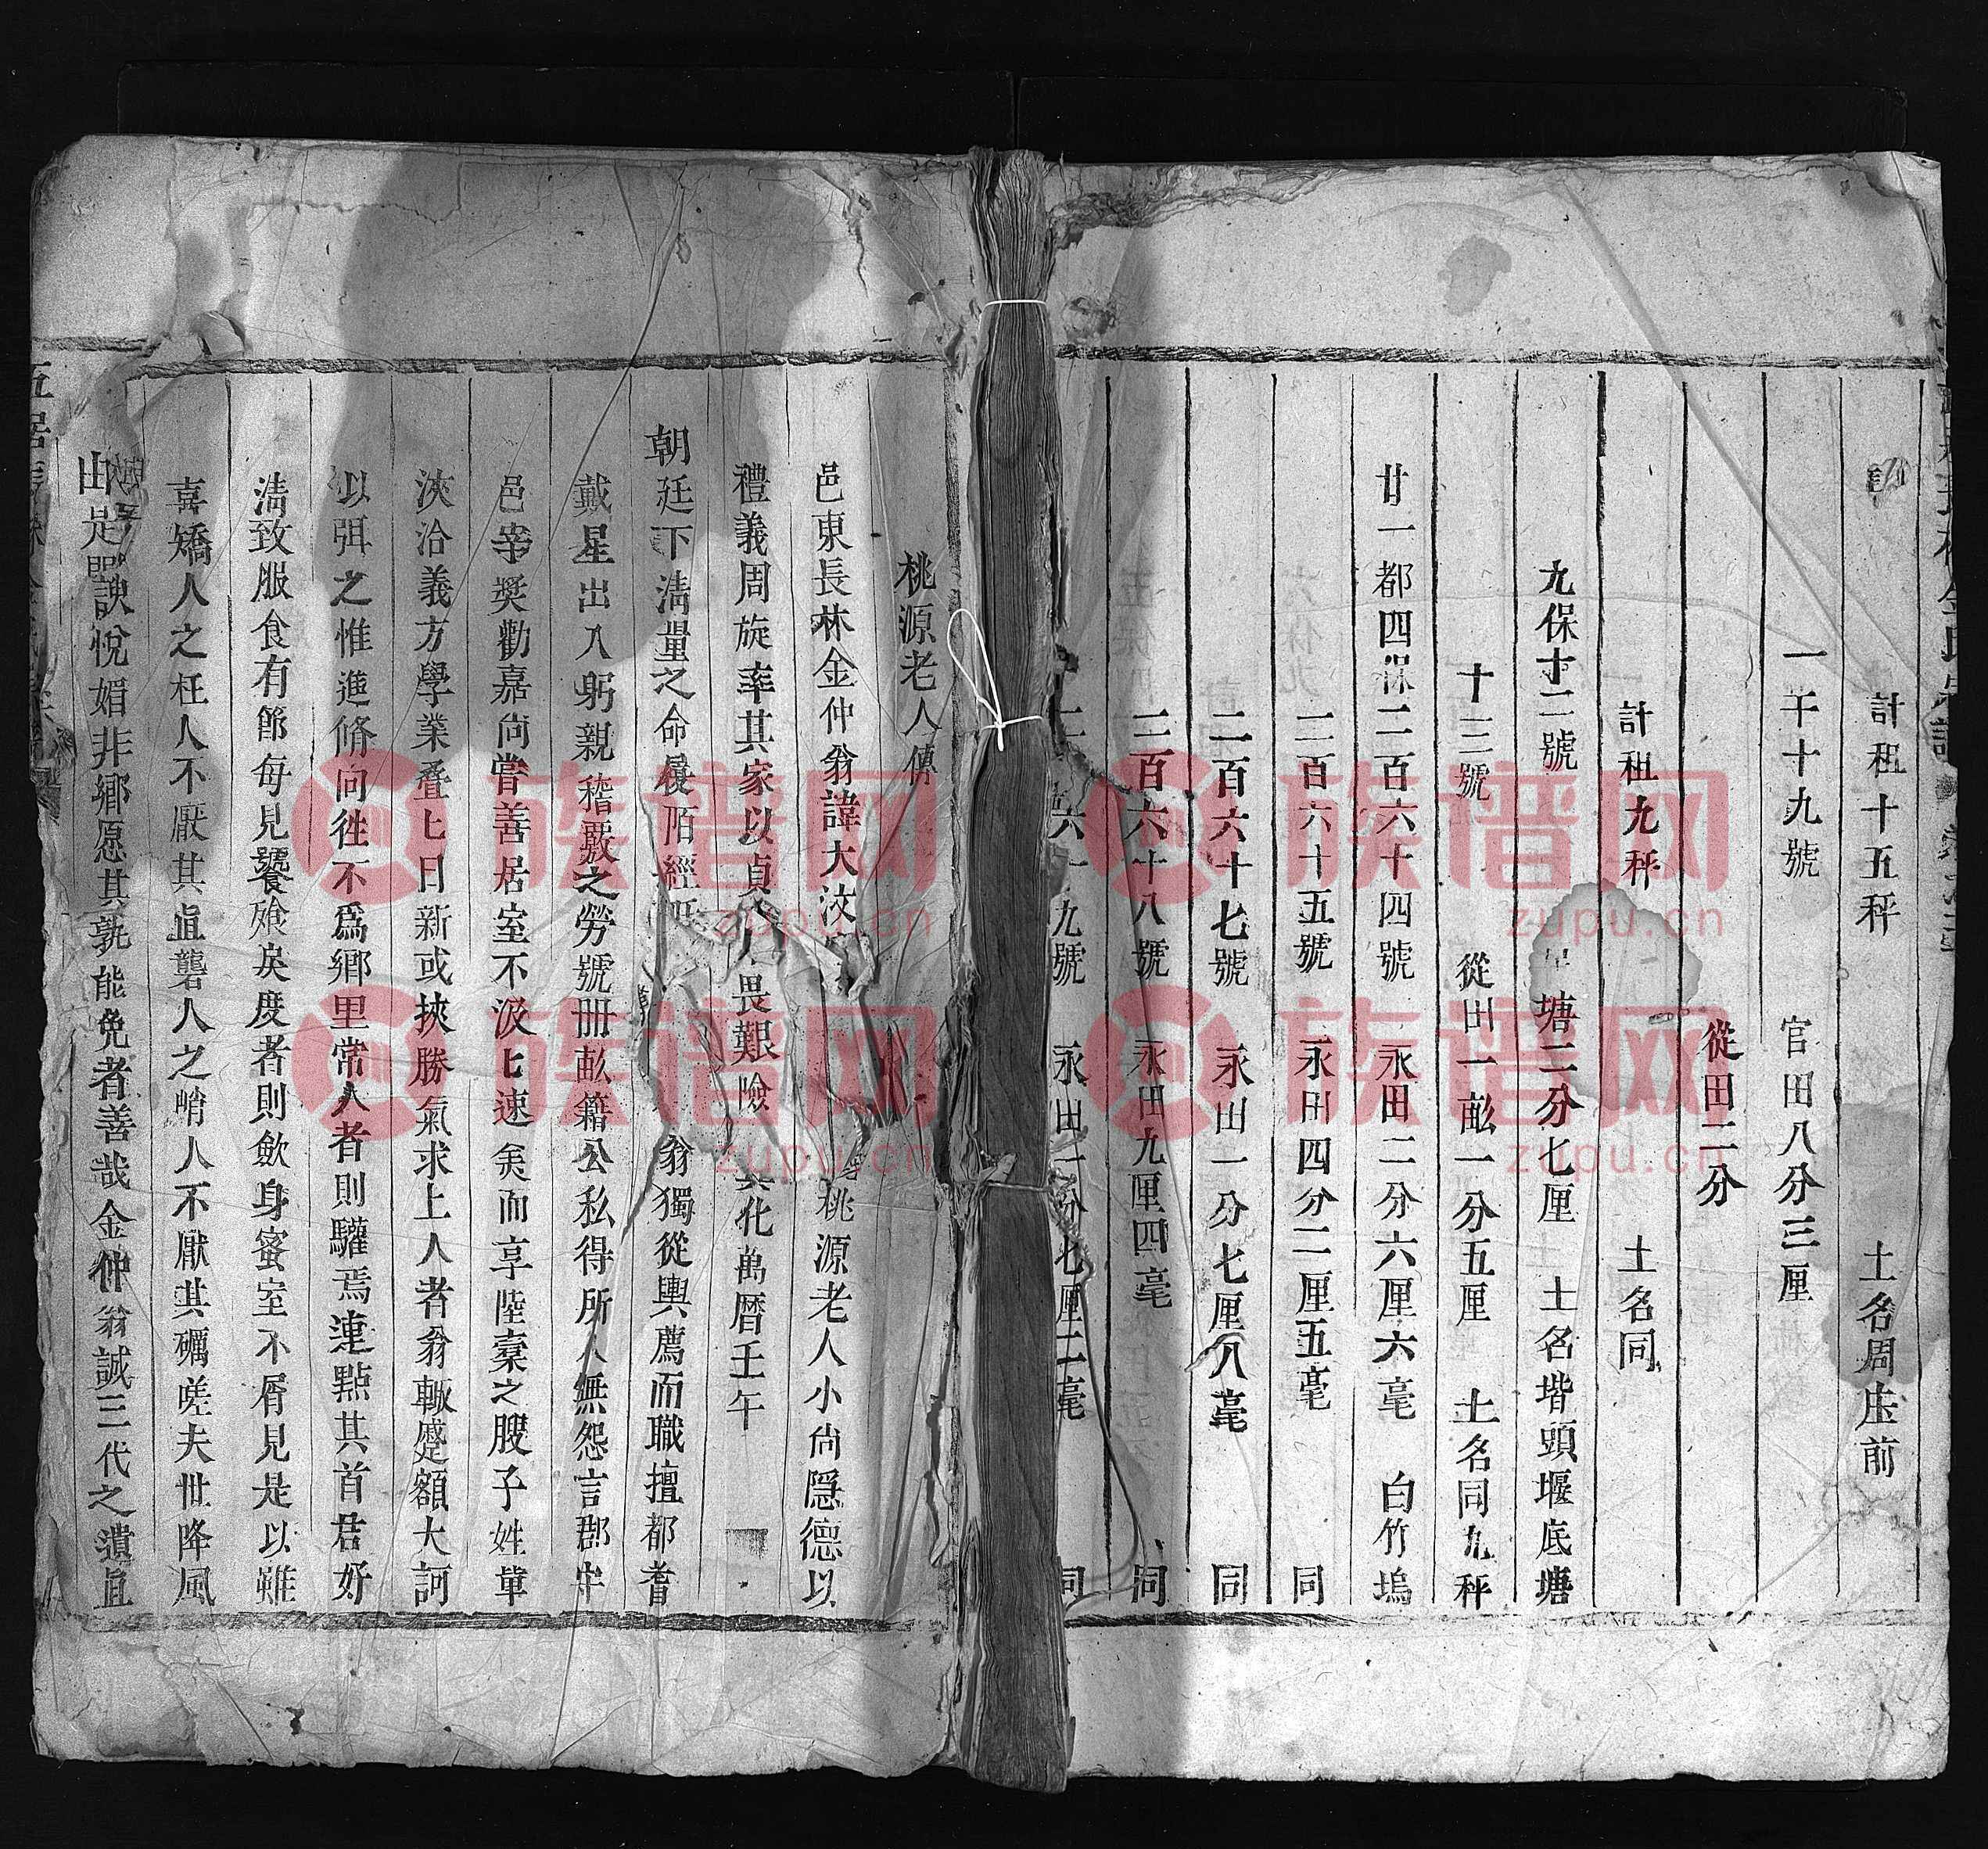 計租十五秤 土名周庄前
一千十九號 官田八分三厘
從田二分
計租九秤 土名同
九保十二號 塘二分七厘 土名堦頭堰底塘
十三號 從田一畝一分五厘 土名同九秤
廿一都四保二百六十四號 永田二分六厘六毫 白竹塢
二百六十五號 永田四分二厘五毫 同
二百六十七號 永田一分七厘八毫 同
二百六十八號 永田九厘四毫 同
六十九號 永田一分七厘二毫 同
桃源老人傳
邑東長林金仲翁諱大汶 桃源老人小尚隱德以
禮義周旋率其家以貞 人畏艱險 化萬曆壬午
朝廷下清量之命 陌經 翁獨從輿薦而職擅都耆
戴星出入躬親稽覈之勞號冊畝籍公私得所人無怨言郡守
邑宰獎勸嘉尚嘗善居室不汲匕速美而享陸槖之腴子姓軰
浹洽義方學業叠匕日新或挾勝氣求上人者翁輙蹙額大訶
以弭之惟進脩向徃不爲鄉里常人者則驩焉連㸃其首居好
清致服食有節每見饕飱戾度者則歛身蜜室不屑見是以雖
喜矯人之枉人不厭其眞礱人之哨人不厭其礪嗟夫世降風
諛悅媚非鄉愿其孰能免者善哉金仲翁誠三代之遺眞
由是